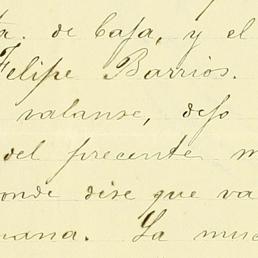 ta. de Casa, y el
Felipe Barrios.
valanse, dejo
del precente m
onde dise que va
mana. La muc